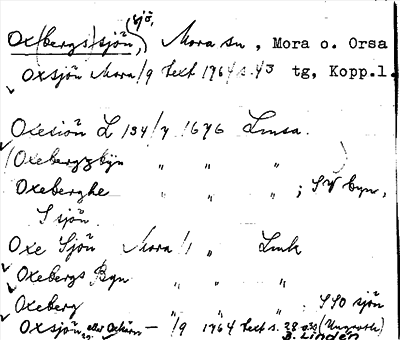 sjö,
Ox(bergs)sjön, Mora sn, Mora o. Orsa
Oxsjön Mora/9 text 1964 s. 43 tg, Kopp.l.
Oxesiön L 134/7 1696 Lmsa.
(Oxebergzbyn " " "
Oxeberghe " " " ; SV byn,
S sjön
Oxe Sjön Mora/1 " Lmk
Oxebergs Byn " " "
Oxeberg " " " . SSO sjön
Oxsjön eller Oxtjärn — /9 1964 text s. 28
B. Lindén